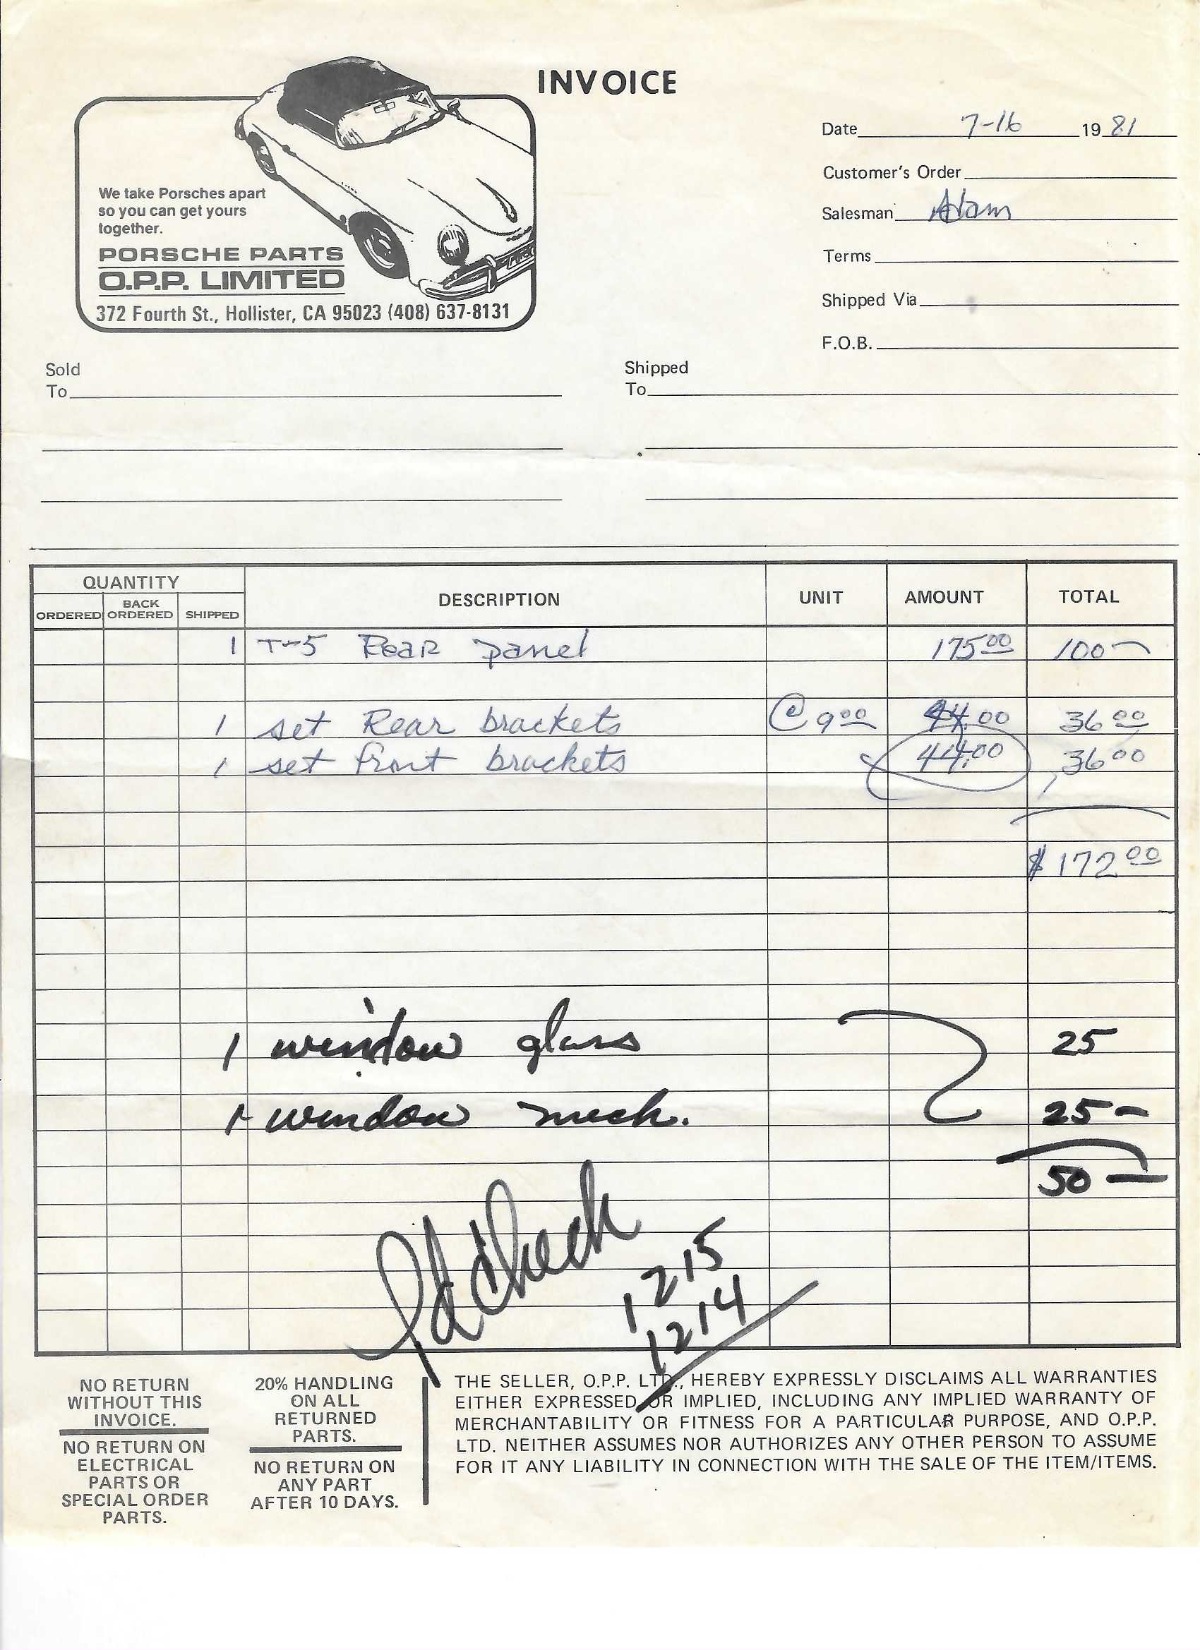 INVOICE
Date 7-16 19 81
Customer's Order
Salesman Adam
Terms
Shipped Via
F.O.B.
We take Porsches apart
so you can get yours
together.
PORSCHE PARTS
O.P.P. LIMITED
372 Fourth St., Hollister, CA 95023 (408) 637-8131
Sold
To
Shipped
To
QUANTITY
ORDERED BACK ORDERED SHIPPED DESCRIPTION UNIT AMOUNT TOTAL
1 T-5 Rear panel 175.00 100-
1 set Rear brackets @ 9.00 44.00 36.00
1 set front brackets 44.00 36.00
$172.00
1 window glass 25
1 window mech. 25-
50-
Pd Check
1215
1214
NO RETURN
WITHOUT THIS
INVOICE.
NO RETURN ON
ELECTRICAL
PARTS OR
SPECIAL ORDER
PARTS.
20% HANDLING
ON ALL
RETURNED
PARTS.
NO RETURN ON
ANY PART
AFTER 10 DAYS.
THE SELLER, O.P.P. LTD., HEREBY EXPRESSLY DISCLAIMS ALL WARRANTIES
EITHER EXPRESSED OR IMPLIED, INCLUDING ANY IMPLIED WARRANTY OF
MERCHANTABILITY OR FITNESS FOR A PARTICULAR PURPOSE, AND O.P.P.
LTD. NEITHER ASSUMES NOR AUTHORIZES ANY OTHER PERSON TO ASSUME
FOR IT ANY LIABILITY IN CONNECTION WITH THE SALE OF THE ITEM/ITEMS.